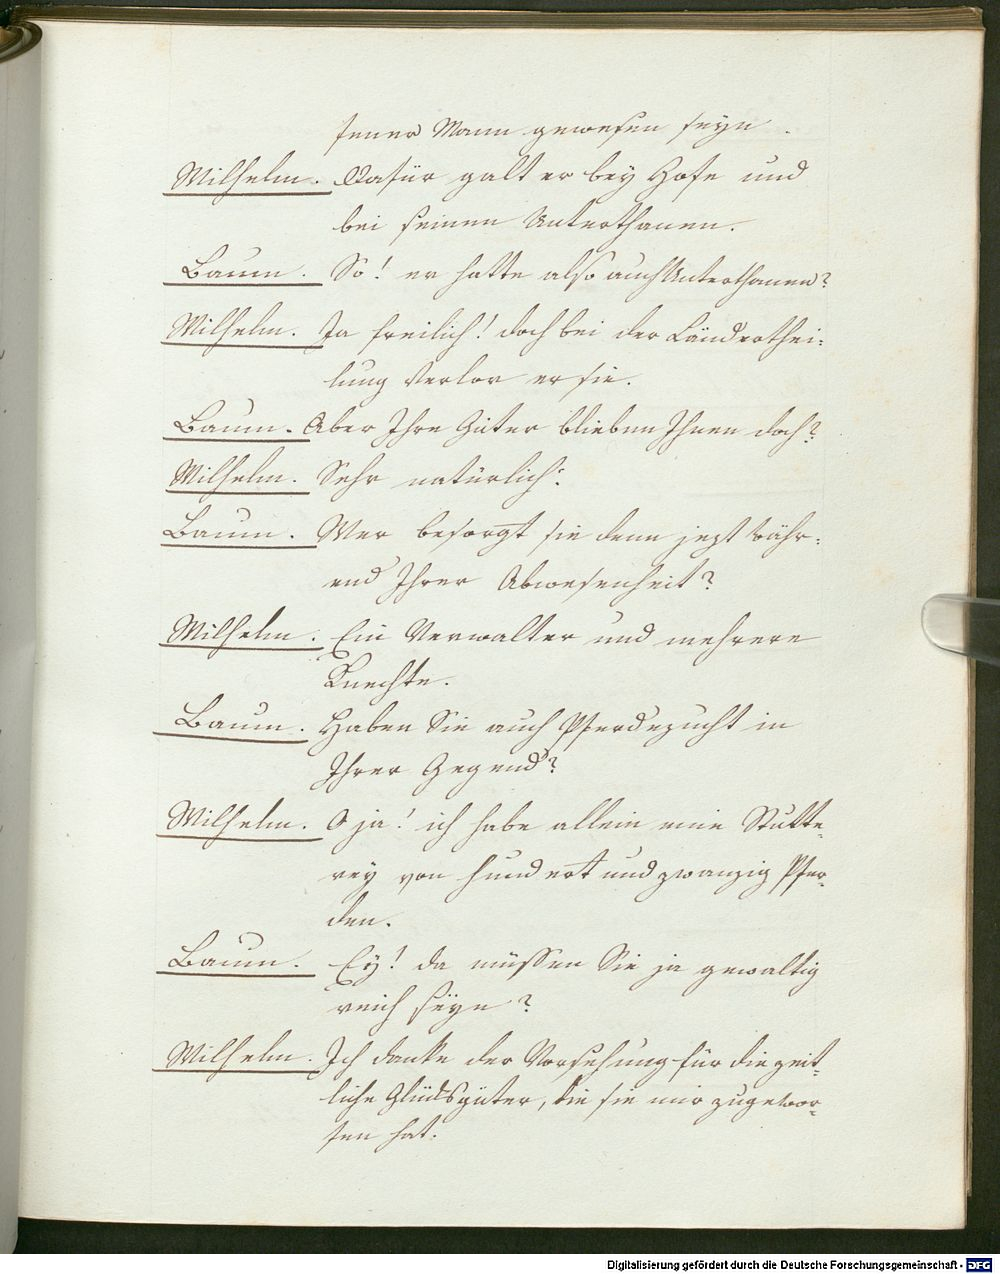 jener Mann gewesen seyn.
Wilhelm. Dafür galt er bey Hofe und
bei seinen Unterthanen.
Baum. So! er hatte also auch Unterthanen?
Wilhelm. Ja freilich! doch bei der Länderthei-
lung verlor er sie.
Baum. Aber Ihre Güter blieben Ihnen doch?
Wilhelm. Sehr natürlich!
Baum. Wer besorgt sie denn jezt währ-
end Ihrer Abwesenheit?
Wilhelm. Ein Verwalter und mehrere
Knechte.
Baum. Haben Sie auch Pferdezucht in
Ihrer Gegend?
Wilhelm. O ja! ich habe allein eine Stutte-
rey von hundert und zwanzig Pfer-
den.
Baum. Ey! da müssen Sie ja gewaltig
reich seyn?
Wilhelm. Ich danke der Vorsehung für die zeit-
liche Glücksgüter, die sie mir zugewor-
fen hat.
Digitalisierung gefördert durch die Deutsche Forschungsgemeinschaft - DFG